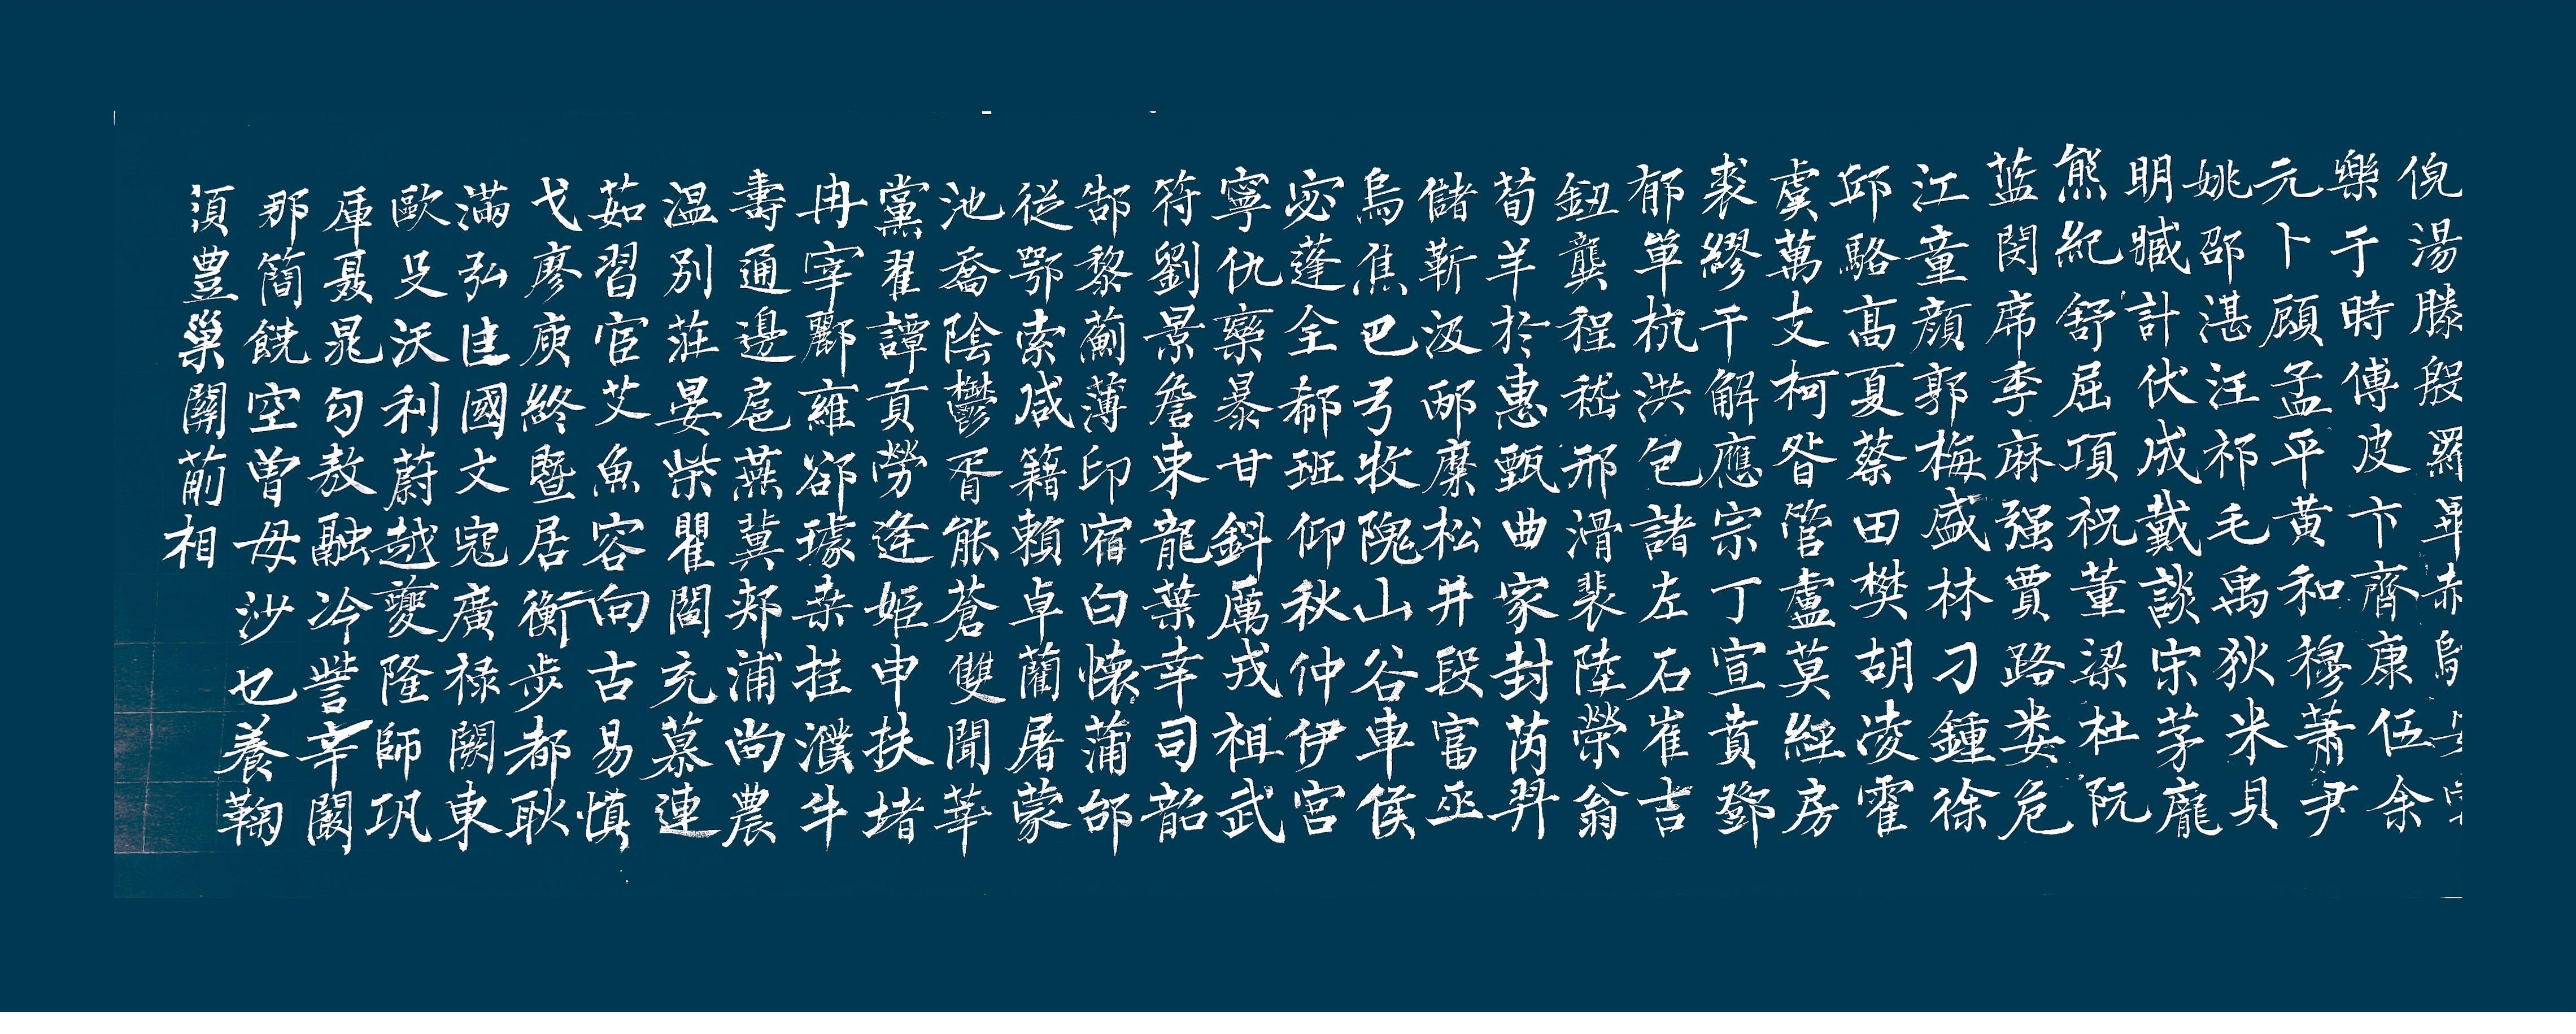 倪湯滕殷羅畢
樂于時傅皮卞齊康伍余
元卜顧孟平黃和穆蕭尹
姚邵湛汪祁毛禹狄米貝
明臧計伏成戴談宋茅龐
熊紀舒屈項祝董梁杜阮
蓝閔席季麻强賈路娄危
江童顏郭梅盛林刁鍾徐
邱駱髙夏蔡田樊胡凌霍
虞萬支柯昝管盧莫經房
裘繆干解應宗丁宣賁鄧
郁單杭洪包諸左石崔吉
鈕龔程嵇邢滑裴陸榮翁
荀羊於惠甄曲家封芮羿
儲靳汲邴糜松井段富巫
烏焦巴弓牧隗山谷車侯
宓蓬全郗班仰秋仲伊宮
寧仇欒暴甘鈄厲戎祖武
符劉景詹束龍葉幸司韶
郜黎薊薄印宿白懷蒲邰
從鄂索咸籍賴卓藺屠蒙
池喬陰鬱胥能蒼雙聞莘
黨翟譚貢勞逄姬申扶堵
冉宰酈雍郤璩桑桂濮牛
壽通邊扈燕冀郟浦尚農
温別莊晏柴瞿閻充慕連
茹習宦艾魚容向古易慎
戈廖庾終暨居衡步都耿
滿弘匡國文寇廣禄闕東
歐殳沃利蔚越夔隆師巩
厙聶晁勾敖融冷訾辛闞
那簡饒空曾毋沙乜養鞠
須豐巢關蒯相